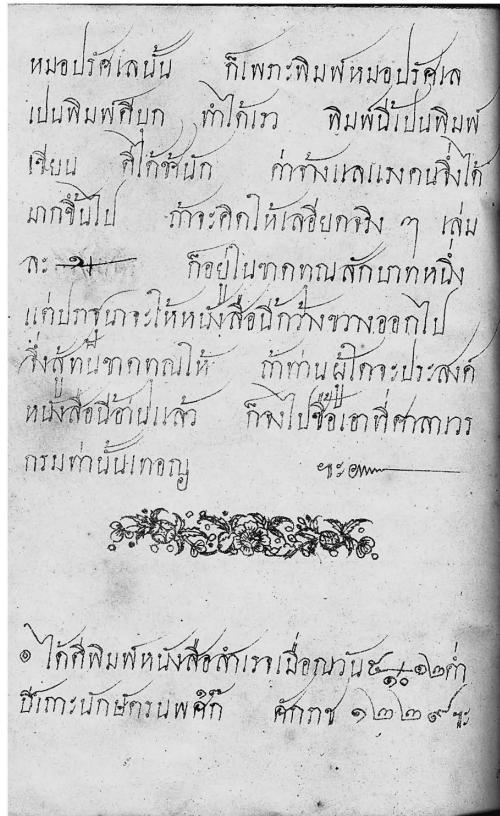 หมอปรัศเลนั้น ก็เพราะพิมพ์หมอปรัศเล
เปนพิมพ์ศีบุก ทำได้เรว พิมพ์นี้เปนพิมพ์
เขียน ตีได้ช้านัก ค่าจ้างแลแรงคนจึ่งได้
มากขึ้นไป ถ้าจะคิดให้เลอียดจริง ๆ เล่ม
ละ ก็อยู่ในขาดทุนสักบาทหนึ่ง
แต่ปราฐนาจะให้หนังสือนี้กว้างขวางออกไป
จึ่งสู้ทนขาดทุนให้ ถ้าท่านผู้ใดจะประสงค์
หนังสือนี้อ่านแล้ว ก็จงไปซื้อเอาที่ศาลาเวร
กรมท่านั้นเทอญ ฯะ
๏ ได้ตีพิมพ์หนังสือสำเรจเมื่อณวัน ๑๐ ๑๒ค่ำ
ปีเถาะนักษัตรนพศัก ศักราช ๑๒๒๙ ฯะ